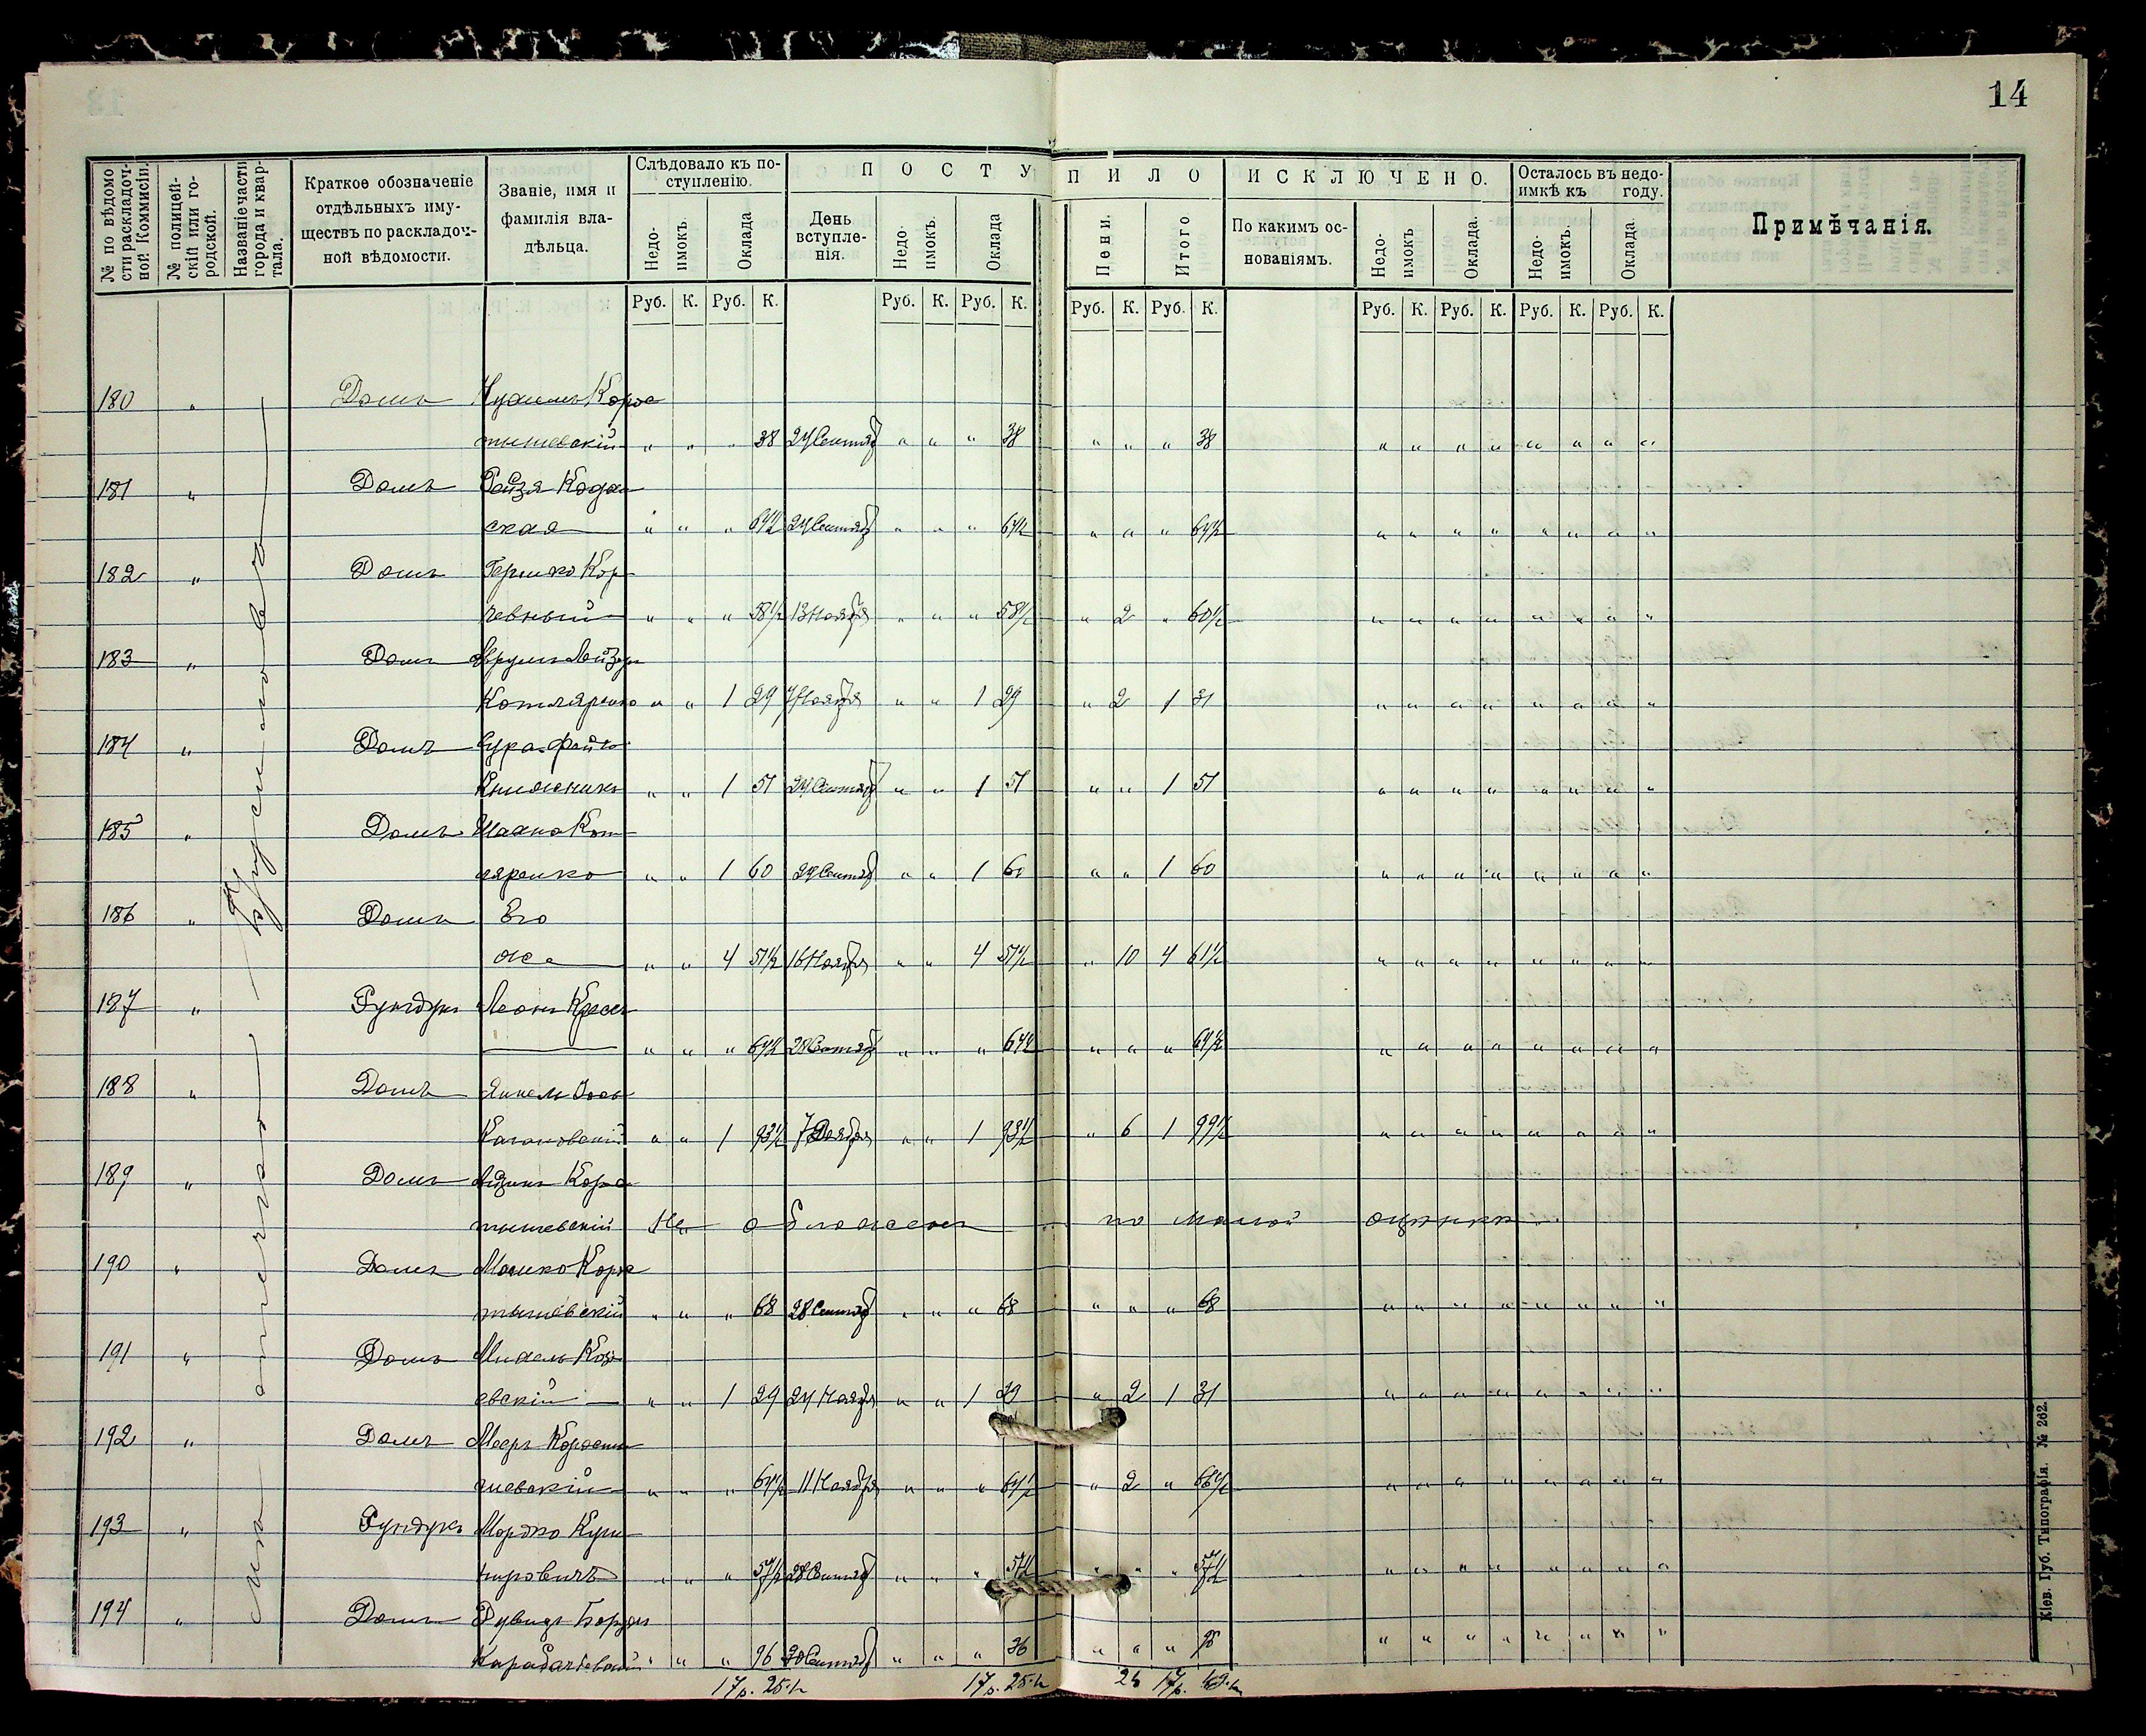 14
№ по вѣдомо
сти раскладоч-
ной Коммисіи.
№ полицей-
скій или го-
родской.
Названіе части
города и квар-
тала.
Краткое обозначеніе
отдѣльныхъ иму-
ществъ по раскладоч-
ной вѣдомости.
Званіе, имя и
фамилія вла-
дѣльца.
Слѣдовало къ по-
ступленію.
Недо-
имокъ.
Оклада.
ПОСТУПИЛО
День
вступле-
нія.
Недо-
имокъ.
Оклада
Пени.
Итого
ИСКЛЮЧЕНО.
По какимъ ос-
нованіямъ.
Недо-
имокъ
Оклада.
Осталось въ недо-
имкѣ къ году.
Недо-
имокъ.
Оклада.
Примѣчанія.
Руб. К. Руб. К. Руб. К. Руб. К. Руб. К. Руб. К. Руб. К. Руб. К. Руб. К. Руб. К.
180 " Домъ
тышевскій " " " 38 24 Сентяб " " " 38 " " " 38 " " " " " " " "
181 " Домъ Рейзя
ская " " " 64½ 24 Сентяб " " " 64½ " " " 64½ " " " " " " " "
182 " Домъ Гершко Кор
чевный " " " 58½ 13 Ноября " " " 58½ " 2 " 60½ " " " " " " " "
183 " Домъ Аврумъ Лейзеръ
Котляренко " " 1 29 7 Ноября " " 1 29 " 2 1 31 " " " " " " " "
184 " Домъ Сура
Книжникъ " " 1 51 24 Сентяб " " 1 51 " " 1 51 " " " " " " " "
185 " Домъ Шахно Кот
ляренко " " 1 60 24 Сентяб " " 1 60 " " 1 60 " " " " " " " "
186 " Домъ Его
же " " 4 51½ 16 Ноября " " 4 51½ " 10 4 61½ " " " " " " " "
187 " Рундукъ Леонъ
" " " 64½ 28 Сентяб " " " 64½ " " " 64½ " " " " " " " "
188 " Домъ Янкель
Кагановскій " " 1 93½ 7 " " 1 93½ " 6 1 99½ " " " " " " " "
189 " Домъ Айзикъ Коро
тышевскій Не обложенъ по малой оцѣнкѣ
190 " Домъ Мошко Коро
тышевскій " " " 68 28 Сентяб " " " 68 " " " 68 " " " " " " " "
191 " Домъ
евскій " " 1 29 24 Ноября " " 1 29 " 2 1 31 " " " " " " " "
192 " Домъ Мееръ Коросты
шевскій " " " 64½ 11 Ноября " " " 64½ " 2 " 66½ " " " " " " " "
193 " Рундукъ Мордко Куш
нировичъ " " " 57½ 28 Сентяб " " " 57½ " " " 57½ " " " " " " " "
194 " Домъ Рувинъ
" " " 96 Сентяб " " " 96 " " " " " " " " " " "
17р. 25½ 17р. 25½ 24 17р.
мѣстечко
Брусиловъ
Кіев. Губ. Типографія. № 262.